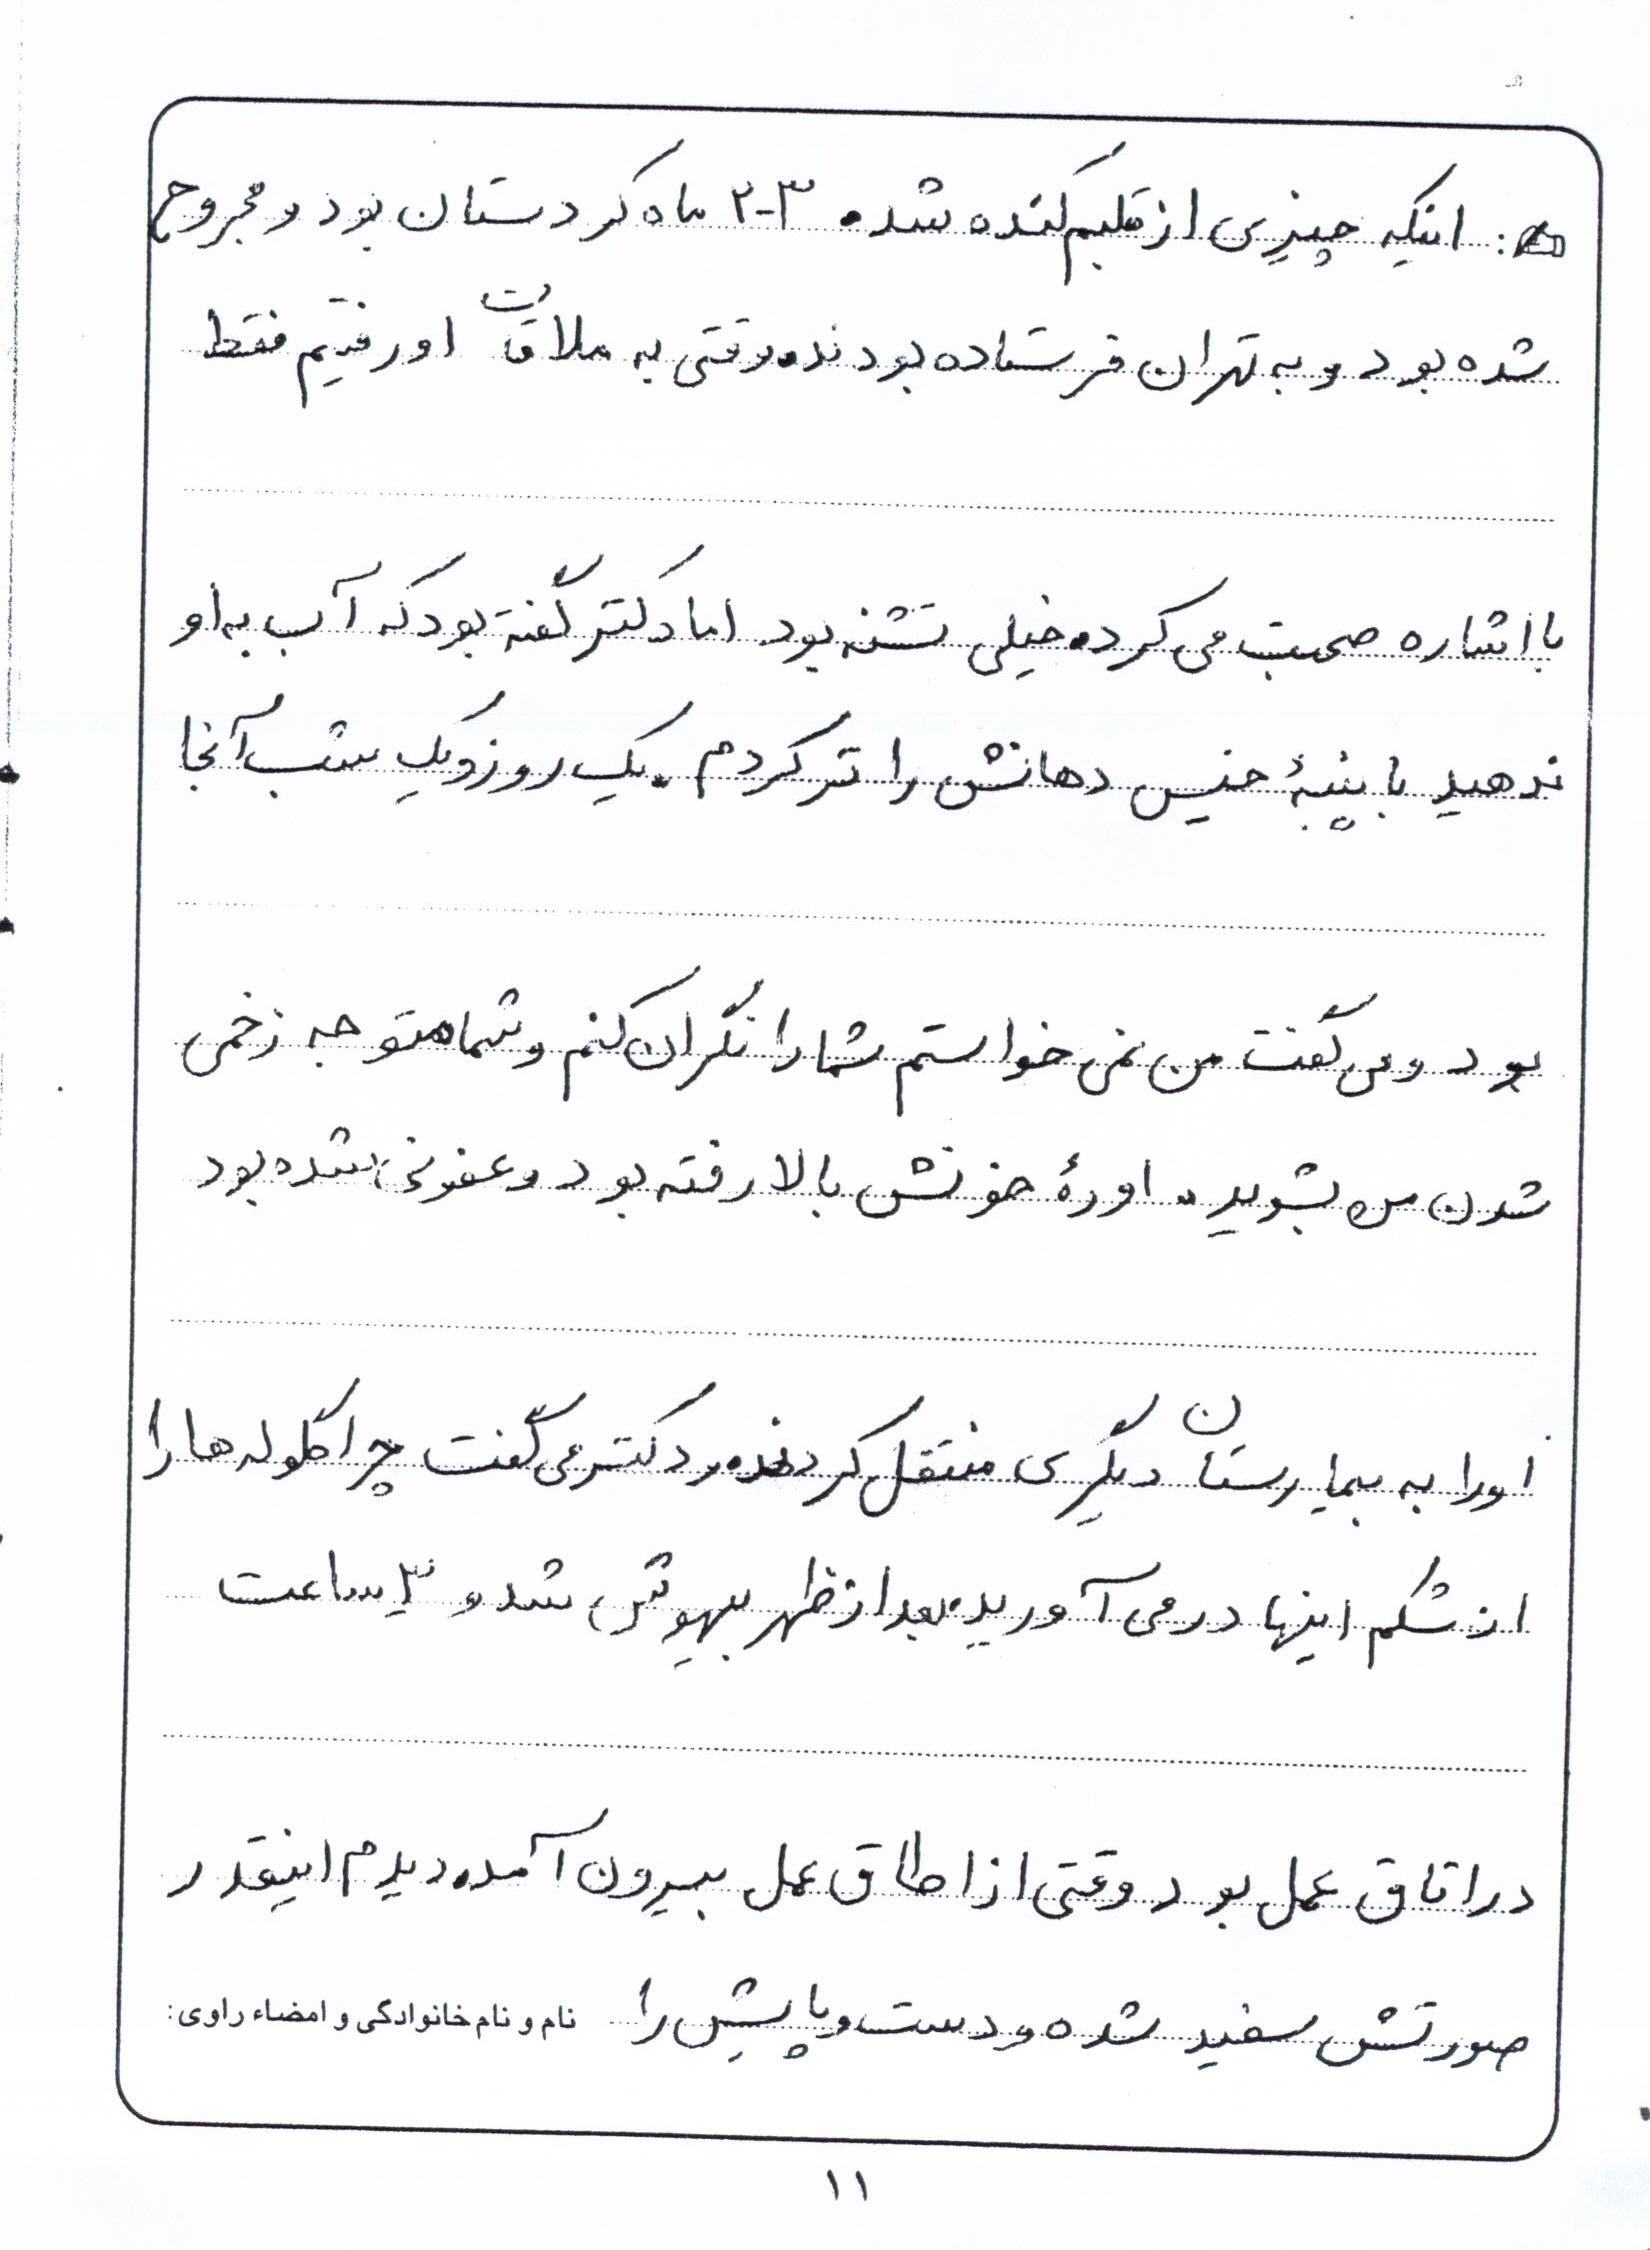 : اینکه چیزی از قلبم کنده شد. ۳-۲ ماه کردستان بود و مجروح
شده بود و به تهران فرستاده بودند. وقتی به ملاقات او رفتیم فقط
با اشاره صحبت می کرد. خیلی تشنه بود اما دکتر گفته بود که آب به او
ندهید با پنبهٔ خیس دهانش را تر کردم. یک روز و یک شب آنجا
بود و می گفت من نمی خواستم شما را نگران کنم و شما متوجه زخمی
شدن من بشوید. اورهٔ خونش بالا رفته بود و عفونی شده بود
او را به بیمارستان دیگری منتقل کردند. دکتر می گفت چرا گلوله ها را
از شکم اینها در می آورید. بعد از ظهر بیهوش شد و ۳ ساعت
در اتاق عمل بود وقتی از اطاق عمل بیرون آمد. دیدم اینقدر
صورتش سفید شده و دست و پایش را نام و نام خانوادگی و امضاء راوی:
۱۱